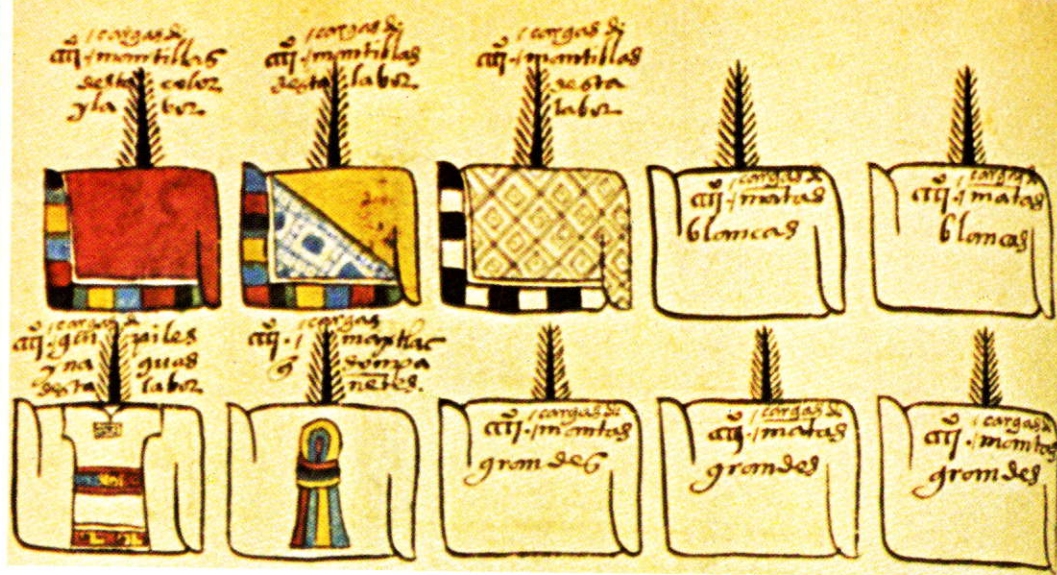 cargas de
cccc mantillas
desta color
y labor
cargas de
cccc mantillas
desta labor
cargas de
cccc mantillas
desta
labor
cargas de
cccc matas
blancas
cargas de
cccc matas
blancas
cargas de
cccc guipiles
y naguas
desta labor
cargas
cccc maxtlac
netes.
cargas de
cccc mantas
grandes
cargas de
cccc matas
grandes
cargas de
cccc mantas
grandes